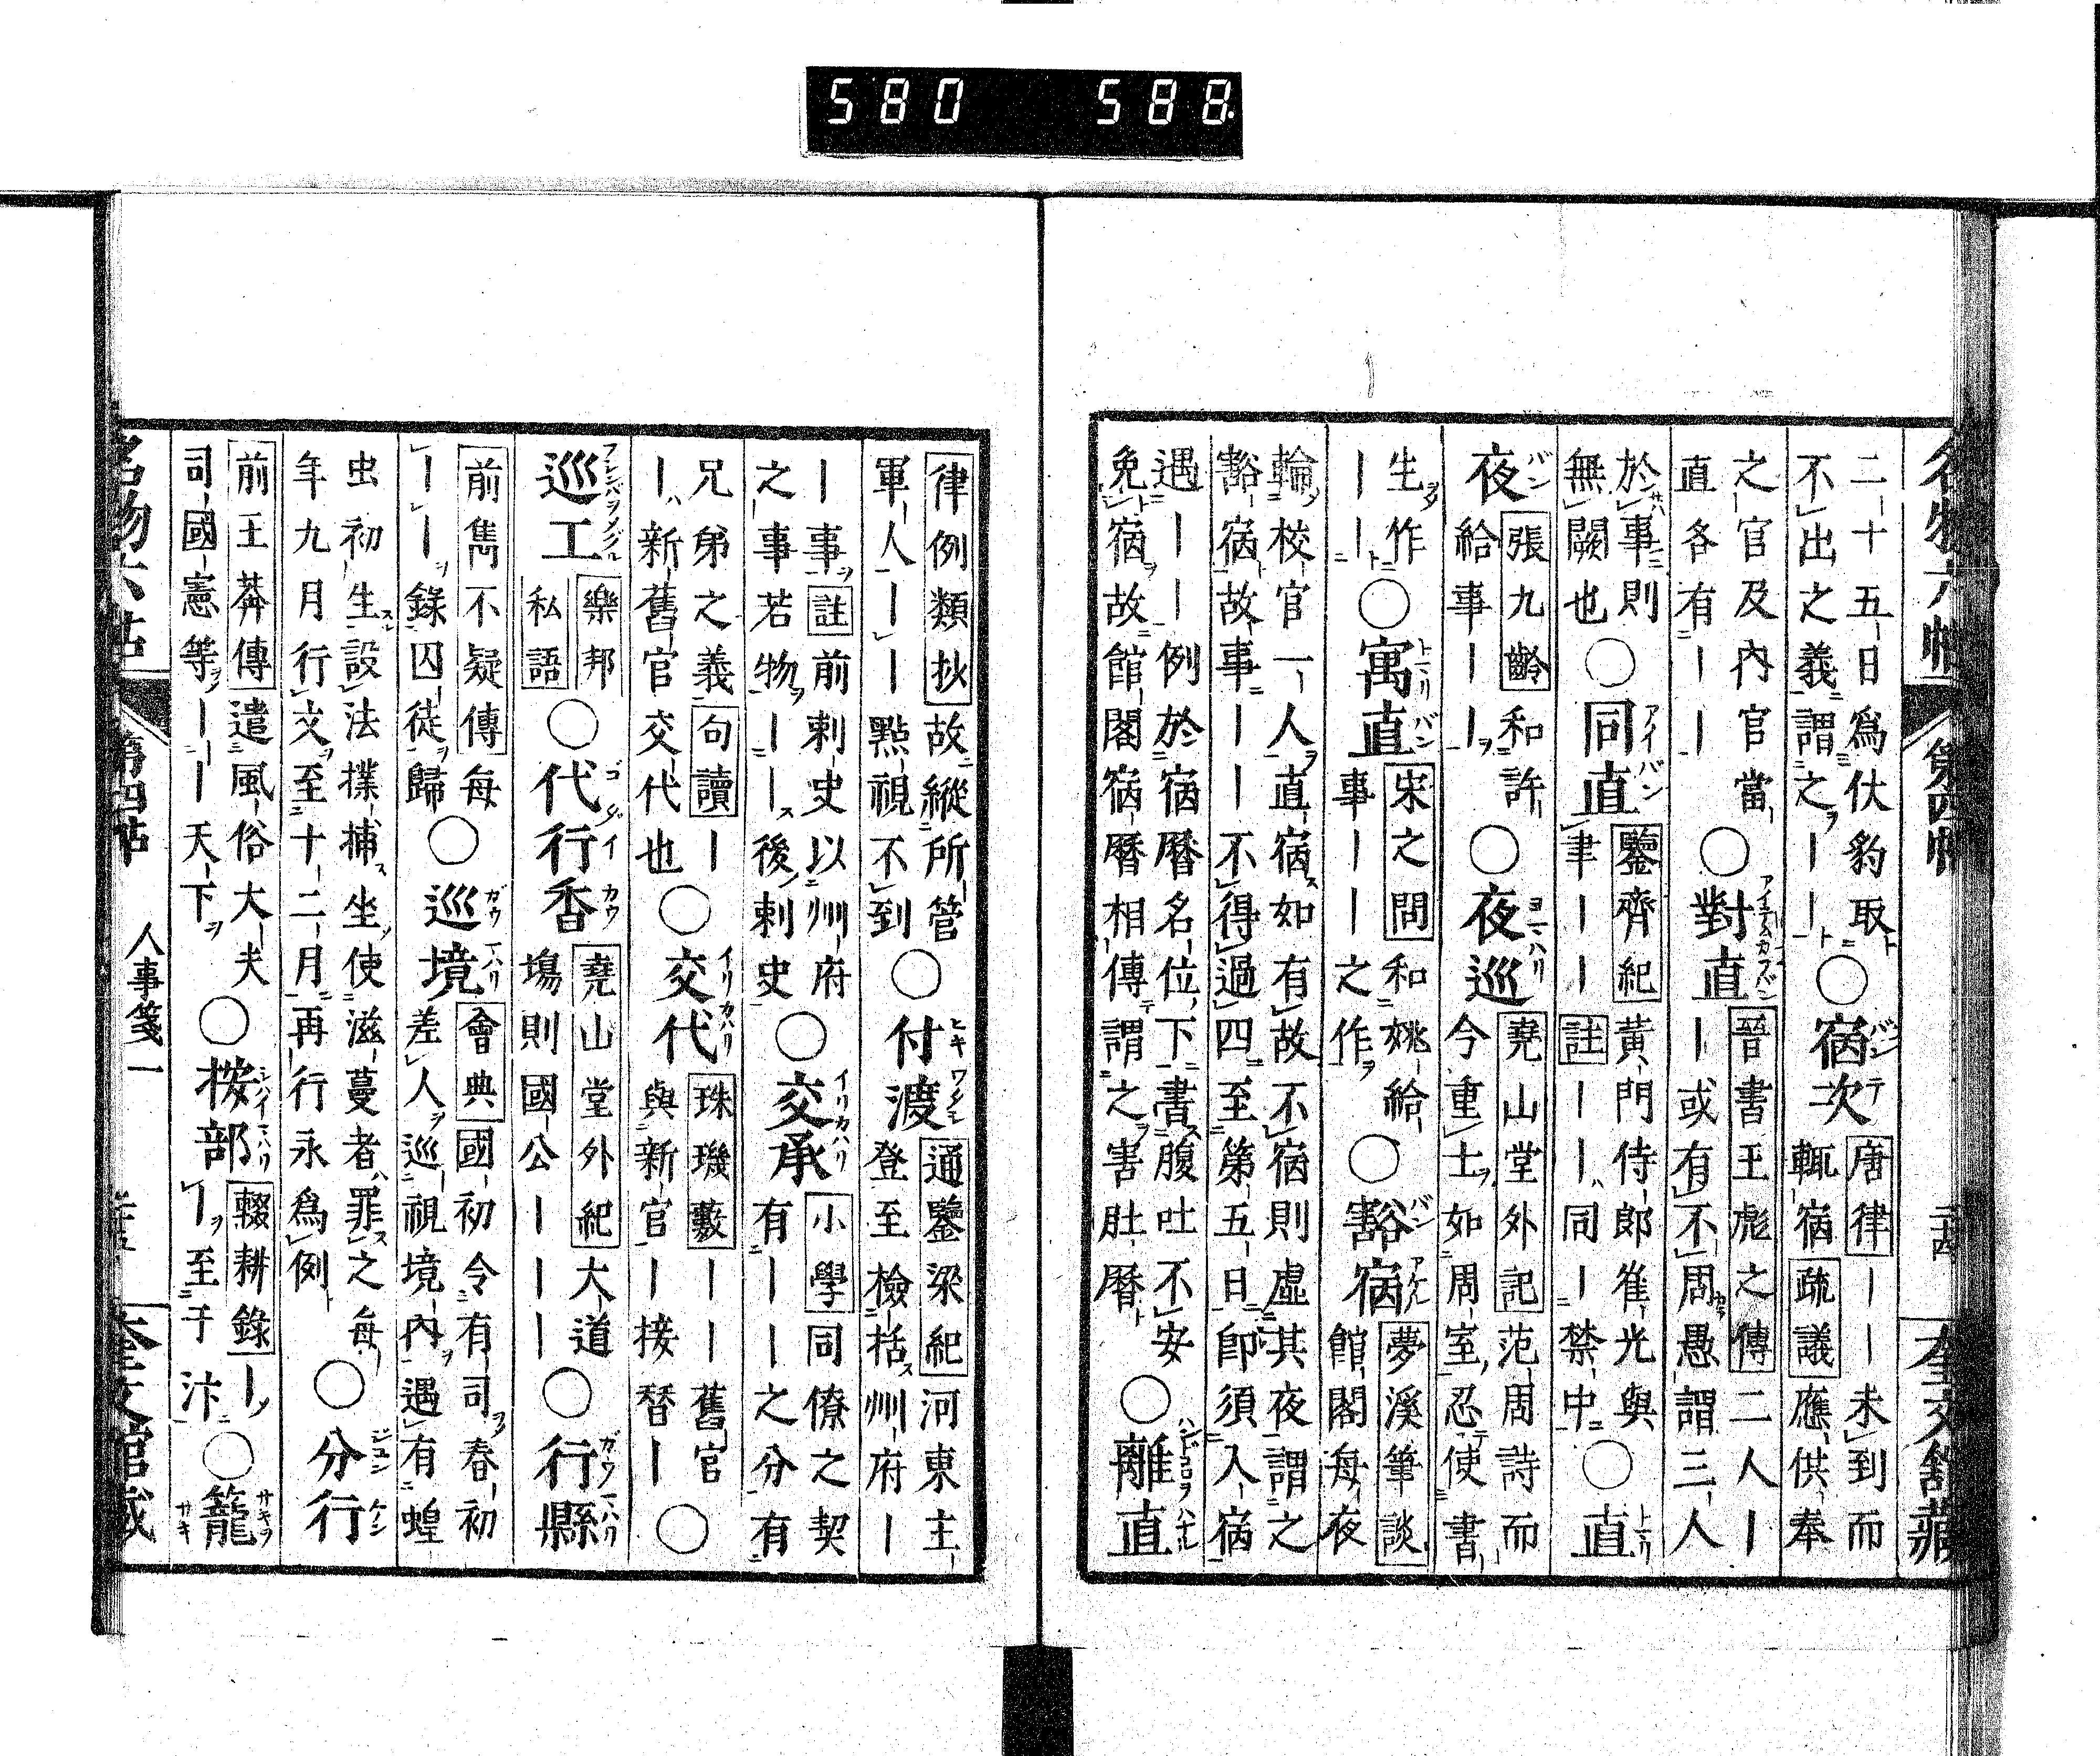 580 588
名物六帖 第四帖 二十四 奎文館藏
二十五日爲伏豹取
不出之義謂之ーー○宿次 唐律 ーー未到而
輒宿 疏議 應供奉
之官及內官當
直各有ーー○對直 晉書王彪之傳 二人ー
ー或有不周愚謂三人
於事則
無闕也○同直 鑒齊紀 黃門侍郎隺光與
聿ーー 註 ーー同ー禁中○直
夜 張九齡 和許
給事ーー○夜巡 堯山堂外記 范周詩而
今重士如周室忍使書
生作
ーー○寓直 宋之問 和姚給
事ーー之作○豁宿 夢溪筆談
館閣每夜
輪校官一人直宿如有故不宿則虛其夜謂之
豁宿故事ーー不得過四至第五日卽須入宿
遇ーー例於宿曆名位下書腹吐不安
免宿故館閣宿曆相傳謂之害肚曆○離直
律例類抄 故縱所管
軍人ーー點視不到○付渡 通鑒梁紀 河東主
登至檢括州府ー
ー事 註 前剌史以州府
之事若物ーー後剌史○交承 小學 同僚之契
有ーー之分有
兄弟之義 句讀 ー
ー新舊官交代也○交代 珠璣藪 ーー舊官
與新官ー接替ー○
巡工 樂邦私語 ○代行香 堯山堂外紀 大道
塲則國公ーーー○行縣
前雋不疑傳 每
ーー錄囚徒歸○巡境 會典 國初令有司春初
差人巡視境內遇有蝗
虫初生設法撲捕坐使滋蔓者罪之每
年九月行文至十二月再行永爲例○分行
前王莽傳 遣風俗大夫
司國憲等ーー天下○按部 輟耕錄 ー
ー至于汴○籠
名物六帖 第四帖 人事箋一 奎文館藏